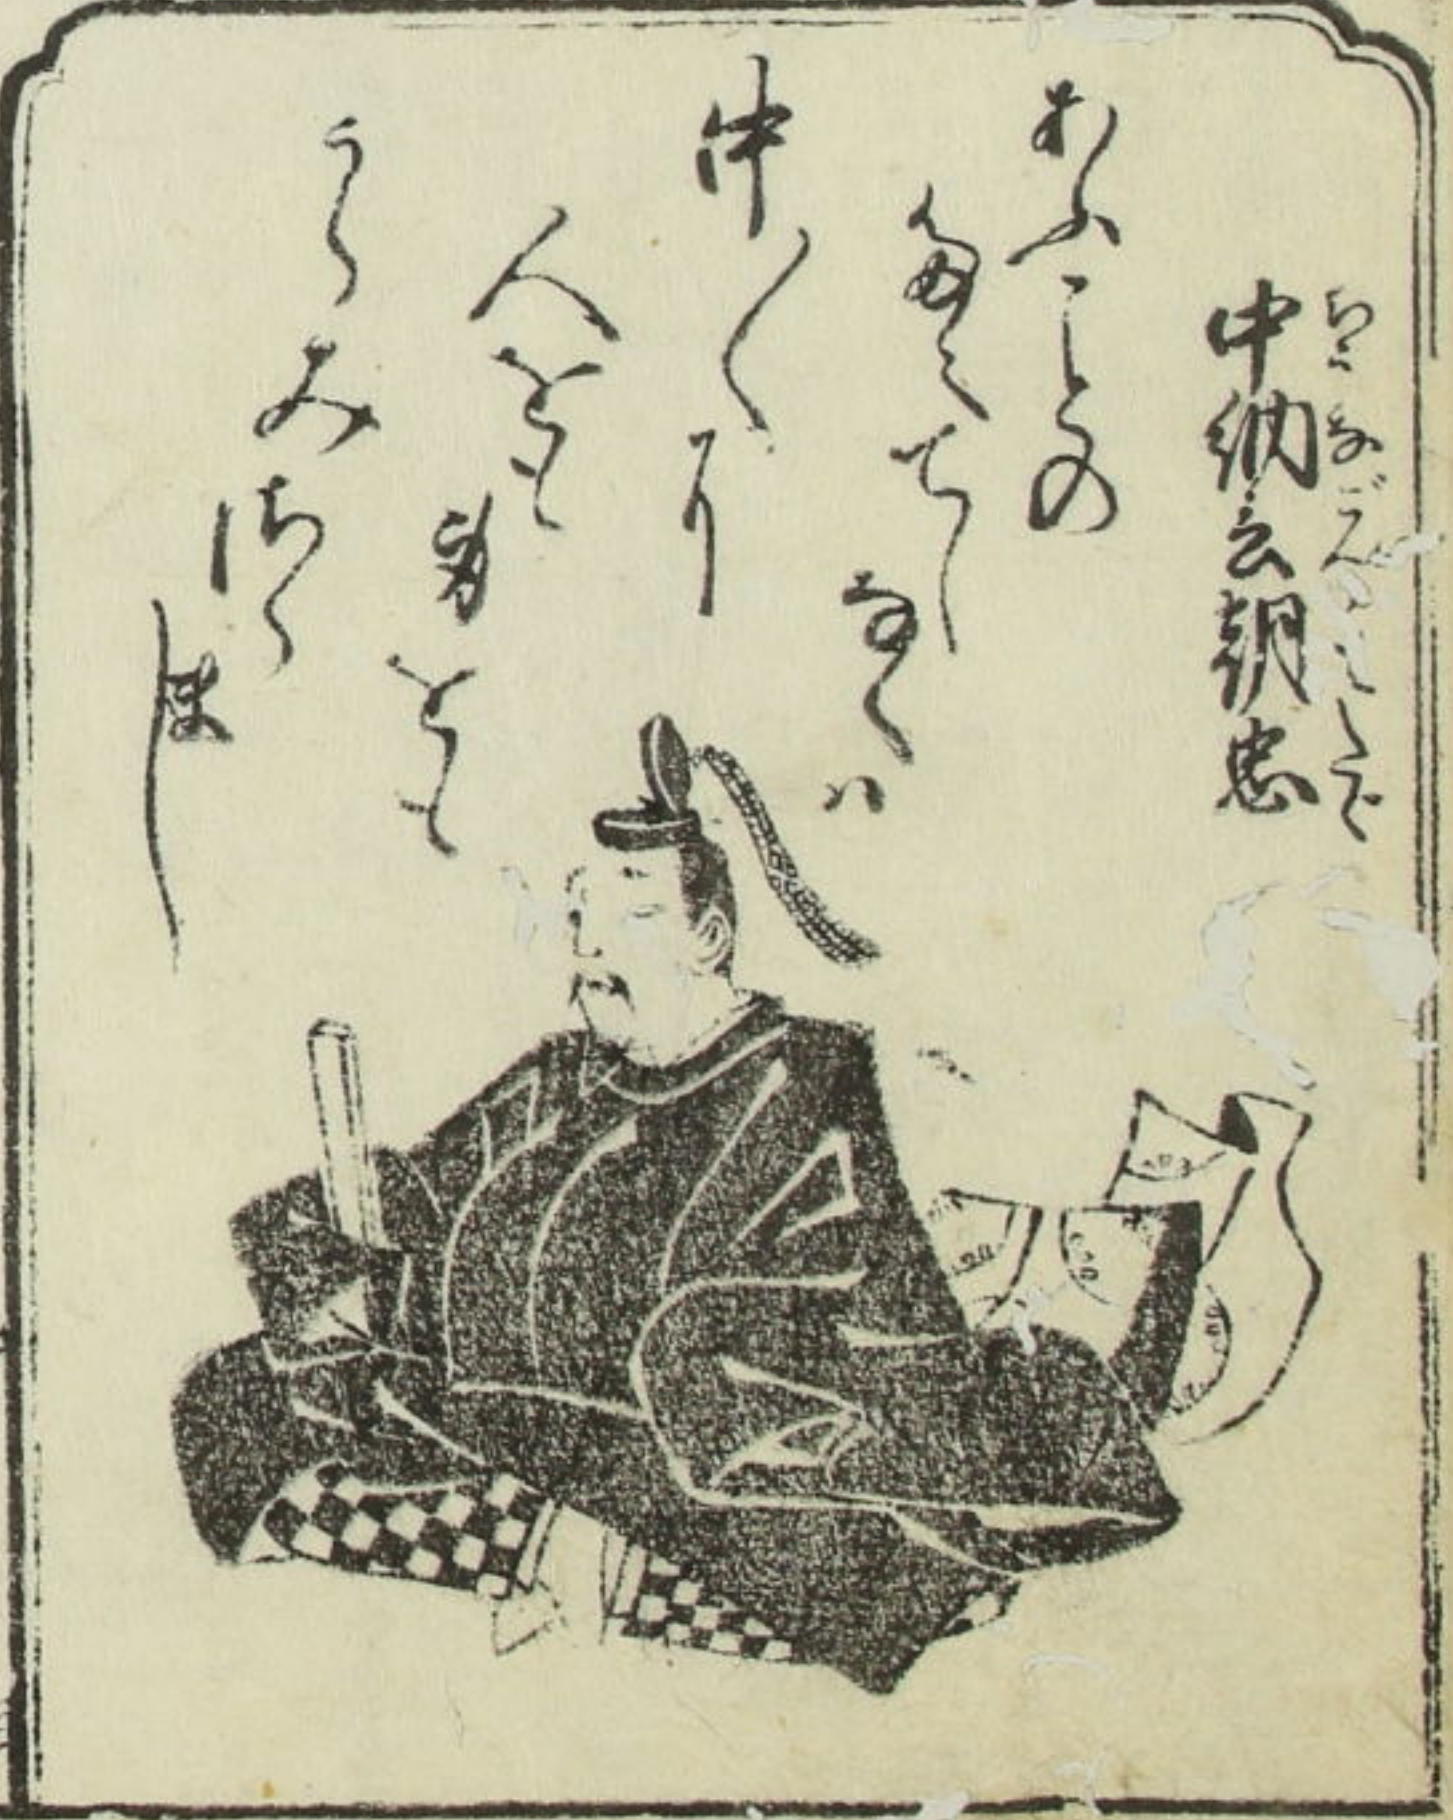 ちうなごんあさたゞ
中納言朝忠
あふことの
たえてし
なくハ
中〱に
人をも
身をも
うらみ
ざら
まし